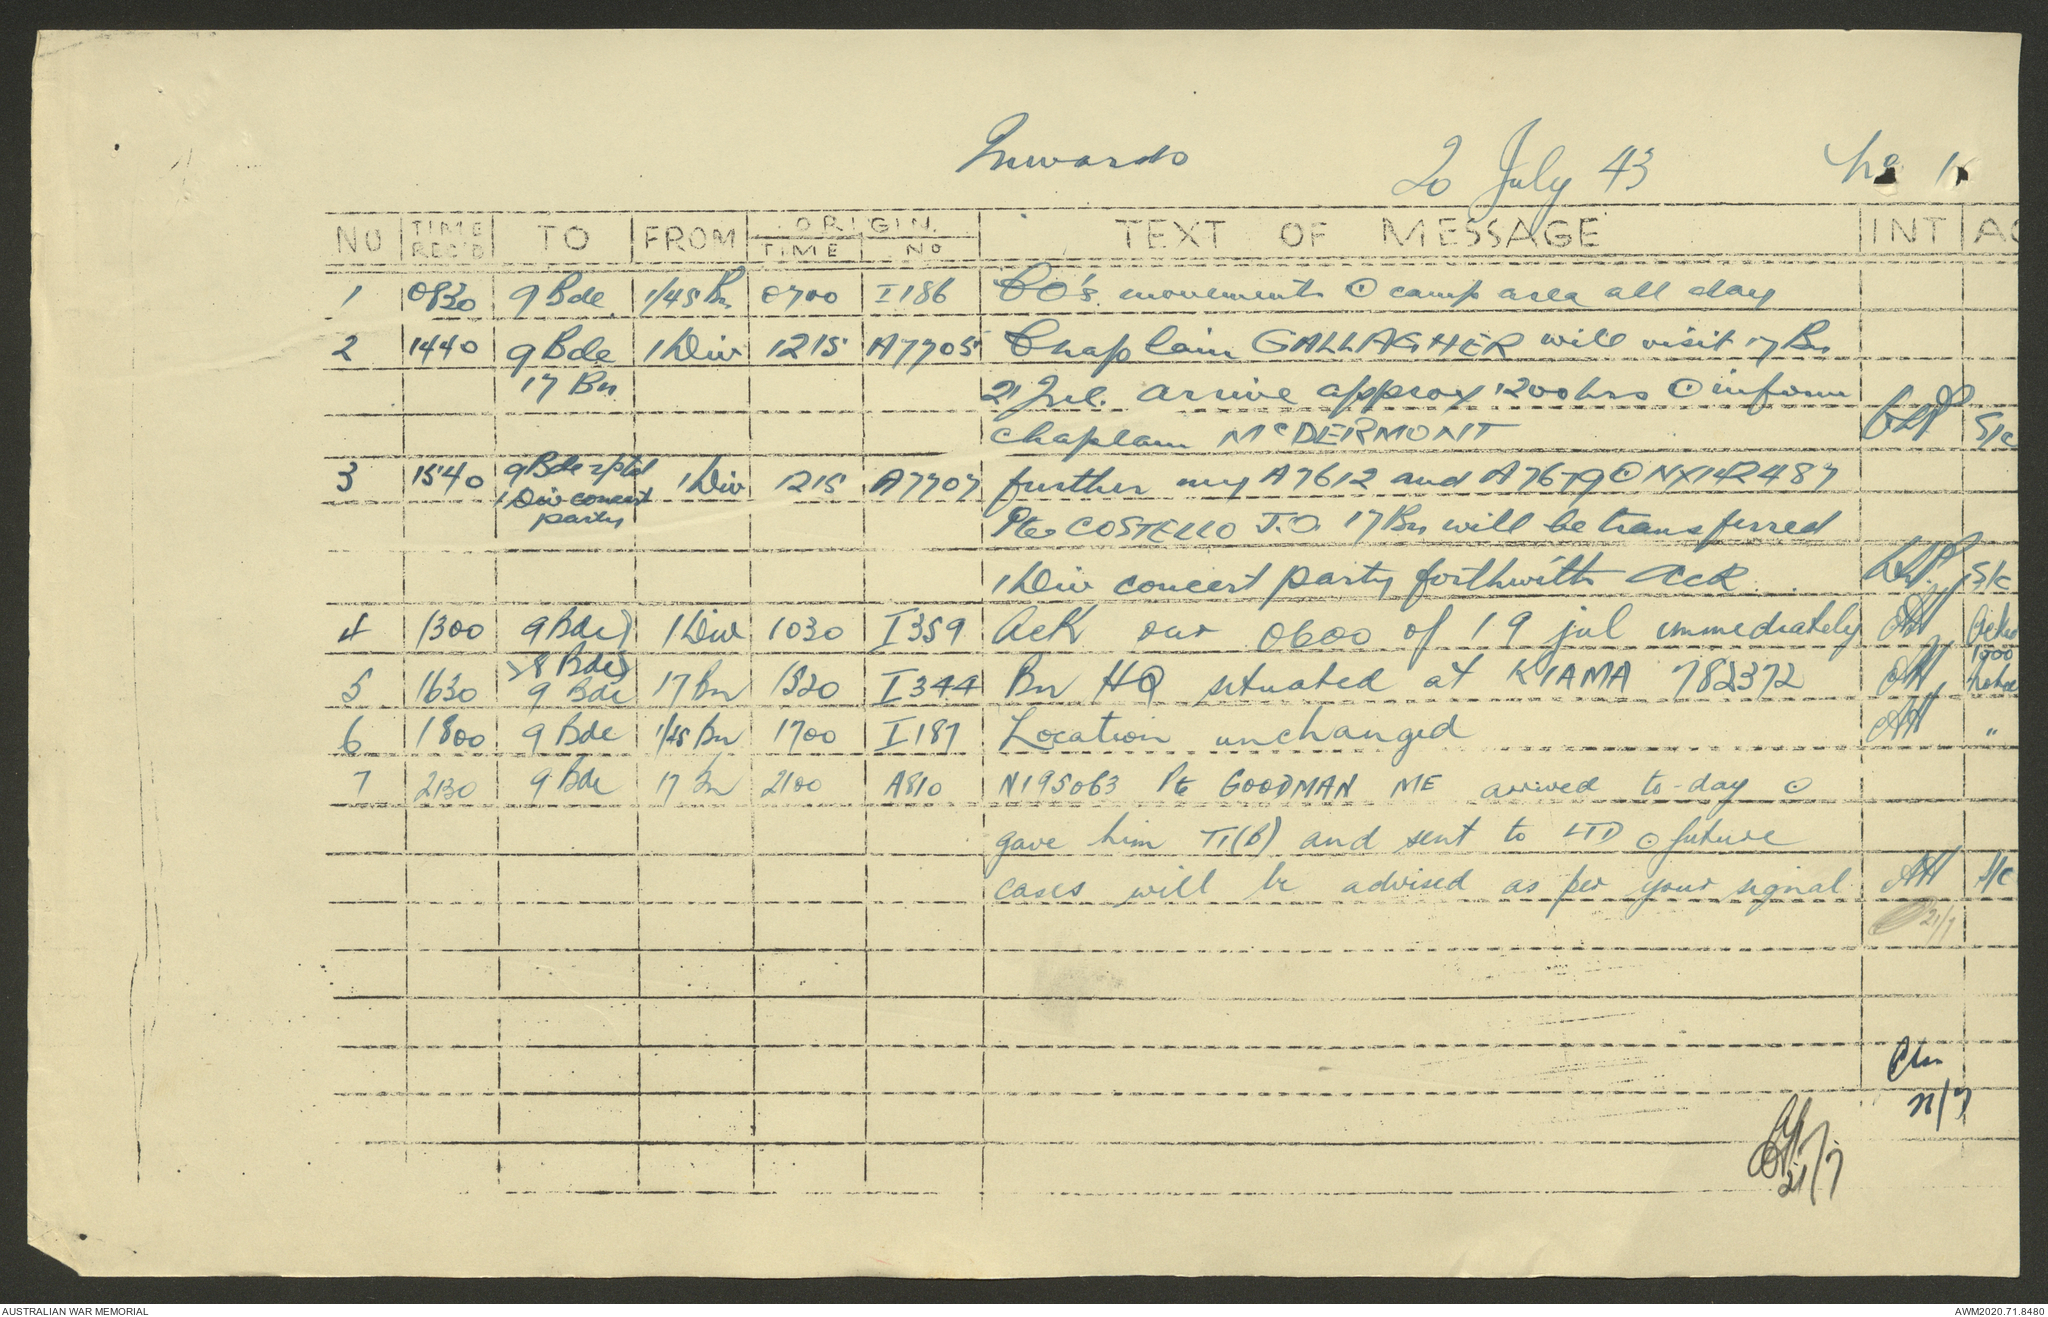 Inwards 20 July 43
NO TIME REC'D TO FROM ORIGIN. TIME NO TEXT OF MESSAGE INT AC
1 0830 9 Bde 1/45 Bn 0700 I186 CO's movements ⊙ camp area all day
2 1440 9 Bde 1 Div 1215 A7705 Chaplain GALLAGHER will visit 17 Bn
17 Bn 21 Jul. arrive approx 1200 hrs ⊙ inform
chaplain McDERMONT S/c
3 1540 9 Bde rptd 1 Div concert party 1 Div 1215 A7707 further my A7612 and A7679 ⊙ NX142487
Pte COSTELLO J.O. 17 Bn will be transferred
1 Div concert party forthwith Ack S/c
4 1300 9 Bde) 1 Div 1030 I359 Ack our 0600 of 19 jul immediately
28 Bde) 1700
5 1630 9 Bde 17 Bn 1520 I344 Bn HQ situated at KIAMA 782372
6 1800 9 Bde 1/45 Bn 1700 I187 Location unchanged "
7 2130 9 Bde 17 Bn 2100 A810 N195063 Pte GOODMAN ME arrived to-day ⊙
gave him TI(B) and sent to LTD ⊙ future
cases will be advised as per your signal AH S/c
21/7
21/7
21/7
AUSTRALIAN WAR MEMORIAL AWM2020.71.8480